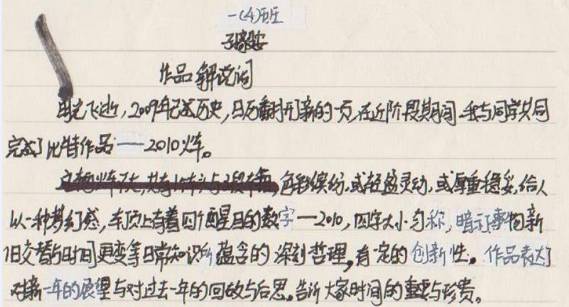 一(4)班
作品解说词
时光飞逝,2009年已成历史,日历翻开新的一页,在近阶段期间我与同学共同
完成了此特作品——2010火车。
色彩缤纷,或轻盈灵动,或厚重稳妥,给人
以一种梦幻感,车顶上有着四个醒目的数字—2010,四字大小匀称,暗示事物新
旧交替与时间更变等日常知识所蕴含的深刻哲理,有一定的创新性。作品表达了
对新一年的展望与对过去一年的回故与反思。告诉大家时间的重要与珍贵。